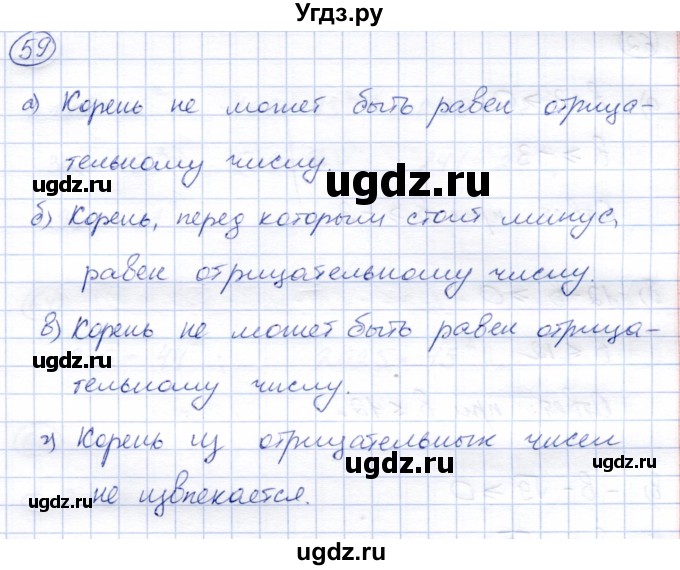 Угдз.ру
59
а) Корень не может быть равен отрица-
тельному числу.
ugdz.ru
ugdz.ru
ugdz.ru
б) Корень, перед которым стоит минус,
равен отрицательному числу.
в) Корень не может быть равен отрица-
тельному числу.
г) Корень из отрицательных чисел
ugdz.ru
ugdz.ru
не извлекается.
ugdz.ru
ugdz.ru